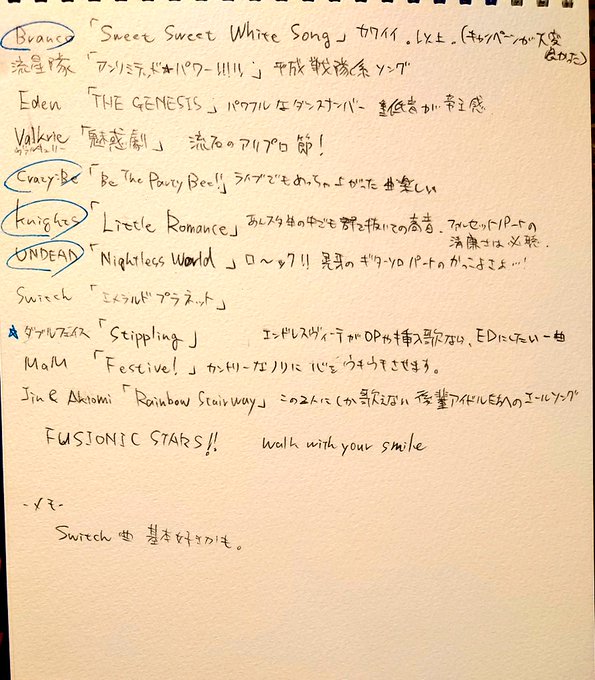 Branco「Sweet Sweet White Song」カワイイ。以上。(キャンペーンが大変
良かった)
流星隊「アンリミテッド★パワー!!!!!」平成戦隊系ソング
Eden「THE GENESIS」パワフルなダンスナンバー 重低音が帝王感
Valkrie「魅惑劇」 流石のアリプロ節!
ヴァルキュリー
Crazy:Be「Be The Party Bee!!」ライブでもめっちゃ上がった 曲楽しい
knights「Little Romance」あんスタ曲の中でも群を抜いての高音。ファルセットパートの
清廉さは必聴。
UNDEAD「Nightless World」ロ〜ック!! 晃牙のギターソロパートのかっこよさよ…!
Switch「エメラルドプラネット」
★ダブルフェイス「Stippling」 エンドレスヴィーテがOPや挿入歌なら、EDにしたい一曲
MaM「Festive!」カントリーなノリに心をウキウキさせます。
Jin & Akiomi「Rainbow Stairway」この2人にしか歌えない 後輩アイドルたちへのエールソング
FUSIONIC STARS!! walk with your smile
-メモ-
Switch 曲 基本好きかも。